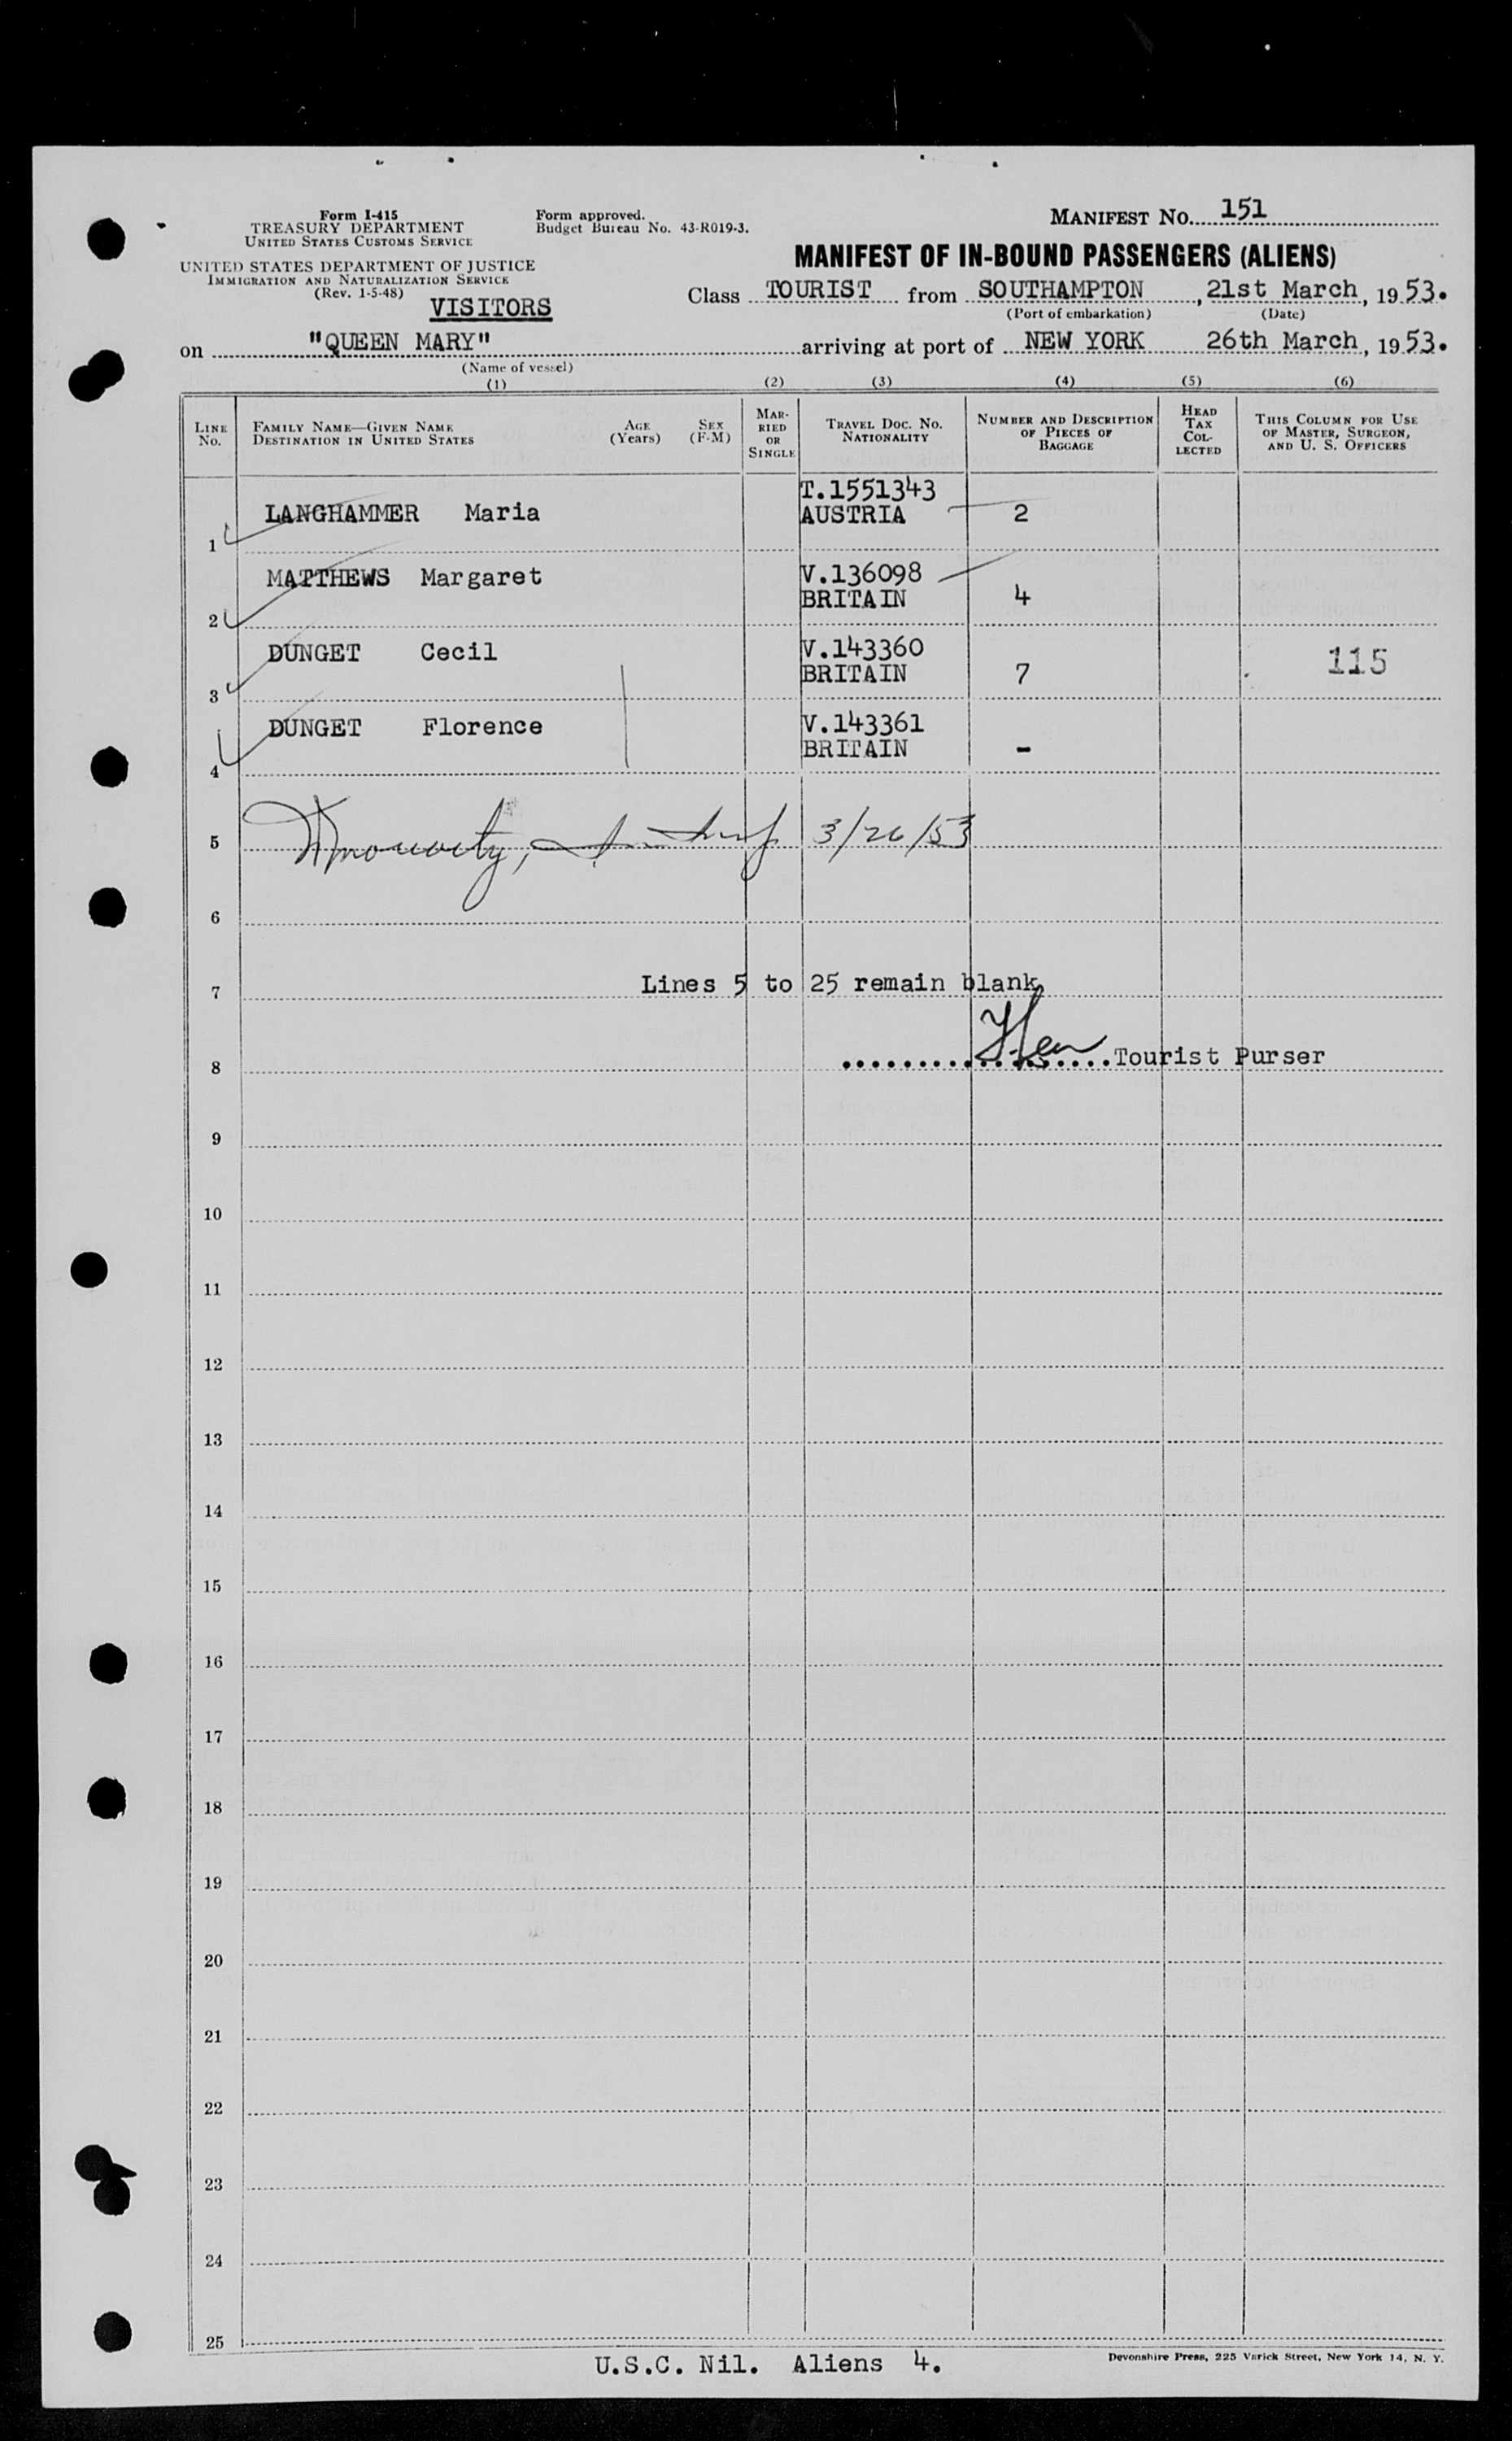 Form I-415
TREASURY DEPARTMENT
UNITED STATES CUSTOMS SERVICE
UNITED STATES DEPARTMENT OF JUSTICE
IMMIGRATION AND NATURALIZATION SERVICE
(Rev. 1-5-48)
VISITORS
Form approved.
Budget Bureau No. 43-R019-3.
MANIFEST No. 151
MANIFEST OF IN-BOUND PASSENGERS (ALIENS)
Class TOURIST from SOUTHAMPTON, 21st March, 1953.
(Port of embarkation) (Date)
on "QUEEN MARY" arriving at port of NEW YORK 26th March, 1953.
(Name of vessel)
(1) (2) (3) (4) (5) (6)
LINE No.
FAMILY NAME—GIVEN NAME
DESTINATION IN UNITED STATES
AGE (Years)
SEX (F-M)
MARRIED OR SINGLE
TRAVEL DOC. No.
NATIONALITY
NUMBER AND DESCRIPTION OF PIECES OF BAGGAGE
HEAD TAX COLLECTED
THIS COLUMN FOR USE OF MASTER, SURGEON, AND U. S. OFFICERS
1 LANGHAMMER Maria T.1551343 AUSTRIA 2
2 MATTHEWS Margaret V.136098 BRITAIN 4
3 DUNGET Cecil V.143360 BRITAIN 7 115
4 DUNGET Florence V.143361 BRITAIN -
5 3/26/53
6
7 Lines 5 to 25 remain blank
8 Tourist Purser
9
10
11
12
13
14
15
16
17
18
19
20
21
22
23
24
25
U.S.C. Nil. Aliens 4.
Devonshire Press, 225 Varick Street, New York 14, N. Y.